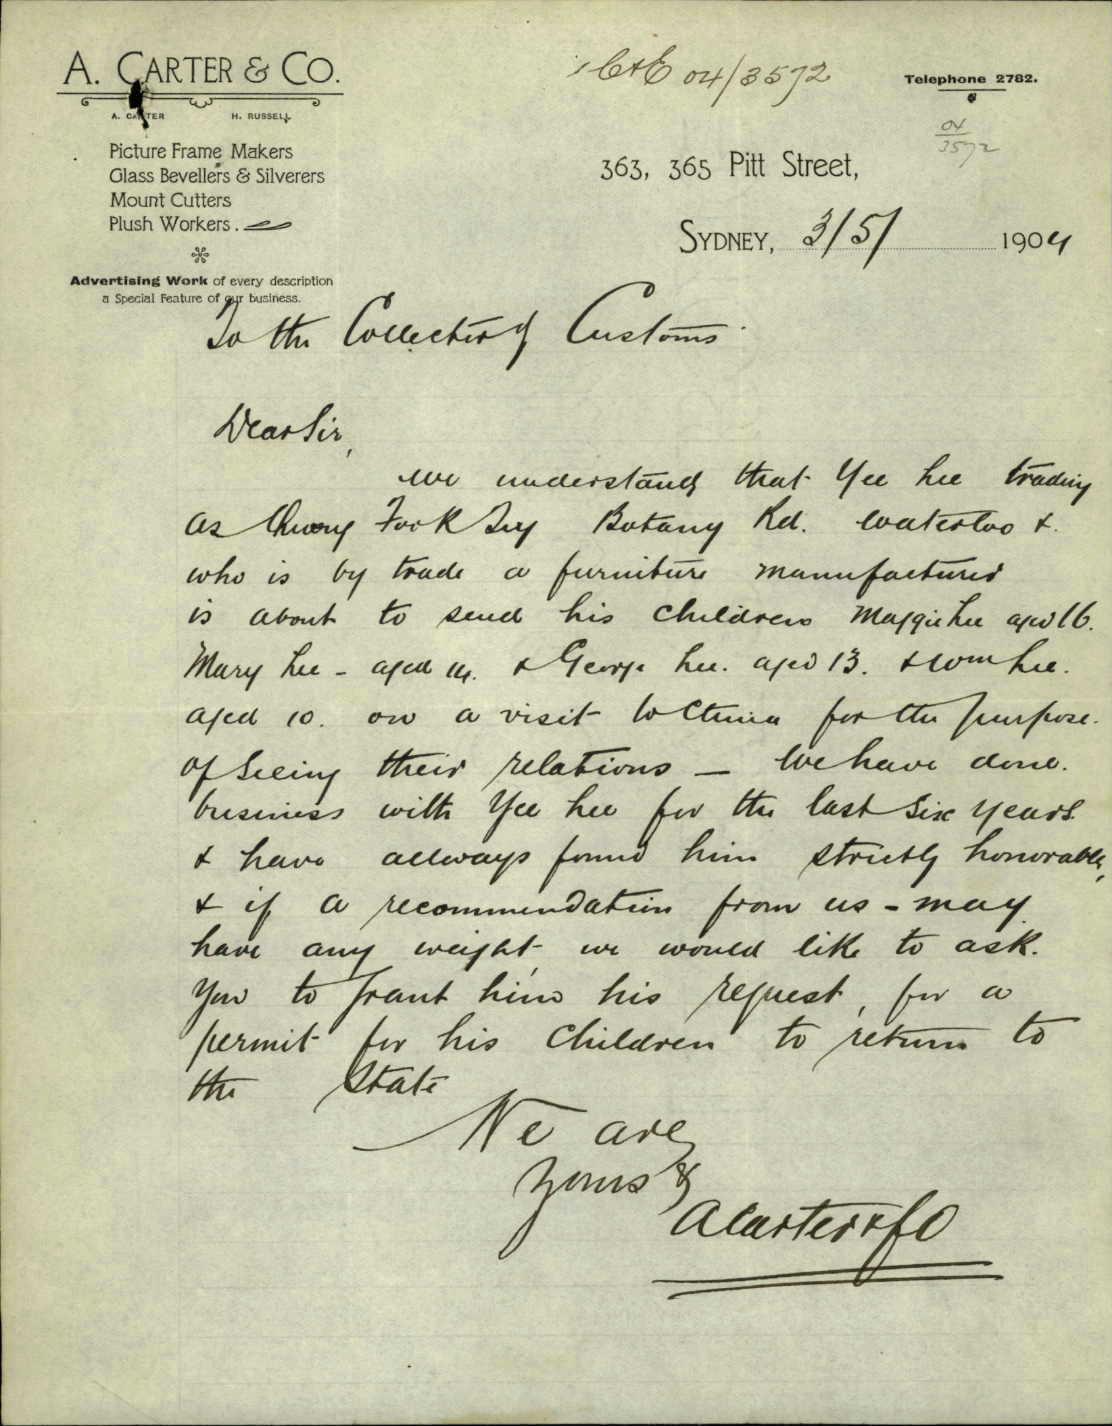 A. CARTER & CO.
A. CARTER H. RUSSELL
Picture Frame Makers
Glass Bevellers & Silverers
Mount Cutters
Plush Workers.
Advertising Work of every description
a Special Feature of our business.
C&E 04/3572
Telephone 2782.
04
3572
363, 365 Pitt Street,
SYDNEY, 3/5/ 1904
To the Collector of Customs
Dear Sir,
we understand that Yee Lee trading
as Fook Botany Rd. Waterloo &
who is by trade a furniture manufacturer
is about to send his children Maggie Lee aged 16.
Mary Lee - aged 14. & George Lee. aged 13. & Wm Lee.
aged 10. on a visit to China for the purpose.
of seeing their relations — We have done.
business with Yee Lee for the last six years
& have allways found him strictly honorable,
& if a recommendation from us - may
have any weight, we would like to ask.
you to grant him his request, for a
permit for his children to return to
the State
We are
Yours &
A Carter & Co